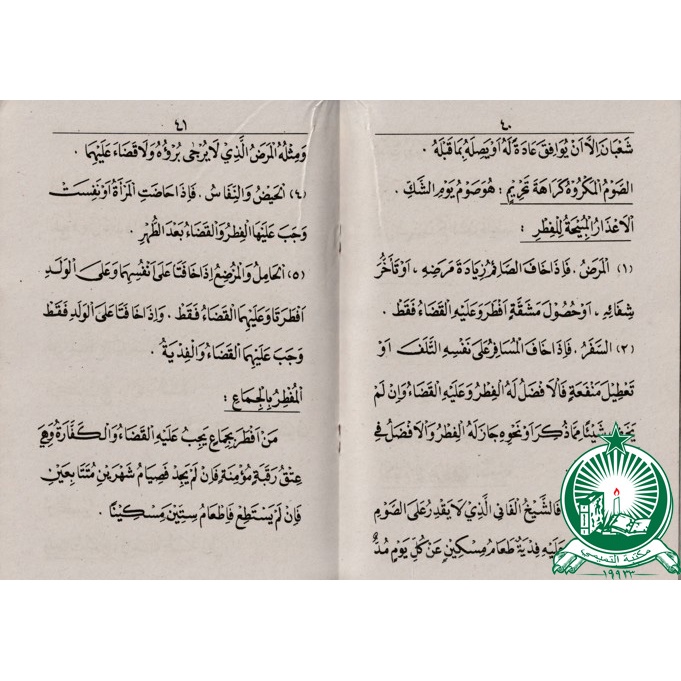 ٤٠
شَعْبَانَ اِلَّا اَنْ يُوَافِقَ عَادَةً لَهُ اَوْ يَصِلَهُ بِمَا قَبْلَهُ .
الصَّوْمُ الْمَكْرُوْهُ كَرَاهَةَ تَحْرِيْمٍ : هُوَ صَوْمُ يَوْمِ الشَّكِّ .
الْاَعْذَارُ الْمُبِيْحَةُ لِلْفِطْرِ :
(١) الْمَرَضُ . فَاِذَا خَافَ الصَّائِمُ زِيَادَةَ مَرَضِهِ ، اَوْ تَأَخُّرَ
شِفَائِهِ ، اَوْ حُصُوْلَ مَشَقَّةٍ اَفْطَرَ وَعَلَيْهِ الْقَضَاءُ فَقَطْ .
(٢) السَّفَرُ . فَاِذَا خَافَ الْمُسَافِرُ عَلَى نَفْسِهِ التَّلَفَ اَوْ
تَعْطِيْلَ مَنْفَعَةٍ فَالْاَفْضَلُ لَهُ الْفِطْرُ وَعَلَيْهِ الْقَضَاءُ وَاِنْ لَمْ
شَيْئًا مِمَّا ذُكِرَ اَوْ نَحْوِهِ جَازَ لَهُ الْفِطْرُ وَالْاَفْضَلُ فِي
فَالشَّيْخُ الْفَانِي الَّذِيْ لَا يَقْدِرُ عَلَى الصَّوْمِ
عَلَيْهِ فِدْيَةٌ طَعَامُ مِسْكِيْنٍ عَنْ كُلِّ يَوْمٍ مُدٌّ
٤١
وَمِثْلُهُ الْمَرَضُ الَّذِيْ لَا يُرْجَى بُرْؤُهُ وَلَا قَضَاءَ عَلَيْهِمَا .
(٤) الْحَيْضُ وَالنِّفَاسُ . فَاِذَا حَاضَتِ الْمَرْأَةُ اَوْ نَفِسَتْ
وَجَبَ عَلَيْهَا الْفِطْرُ وَالْقَضَاءُ بَعْدَ الطُّهْرِ .
(٥) الْحَامِلُ وَالْمُرْضِعُ اِذَا خَافَتَا عَلَى اَنْفُسِهِمَا وَعَلَى الْوَلَدِ
اَفْطَرَتَا وَعَلَيْهِمَا الْقَضَاءُ فَقَطْ . وَاِذَا خَافَتَا عَلَى الْوَلَدِ فَقَطْ
وَجَبَ عَلَيْهِمَا الْقَضَاءُ وَالْفِدْيَةُ .
الْمُفْطِرُ بِالْجِمَاعِ :
مَنْ اَفْطَرَ بِجِمَاعٍ يَجِبُ عَلَيْهِ الْقَضَاءُ وَالْكَفَّارَةُ وَهِيَ
عِتْقُ رَقَبَةٍ مُؤْمِنَةٍ فَاِنْ لَمْ يَجِدْ فَصِيَامُ شَهْرَيْنِ مُتَتَابِعَيْنِ
فَاِنْ لَمْ يَسْتَطِعْ فَاِطْعَامُ سِتِّيْنَ مِسْكِيْنًا .
مكتبة
١٩٩٣٣